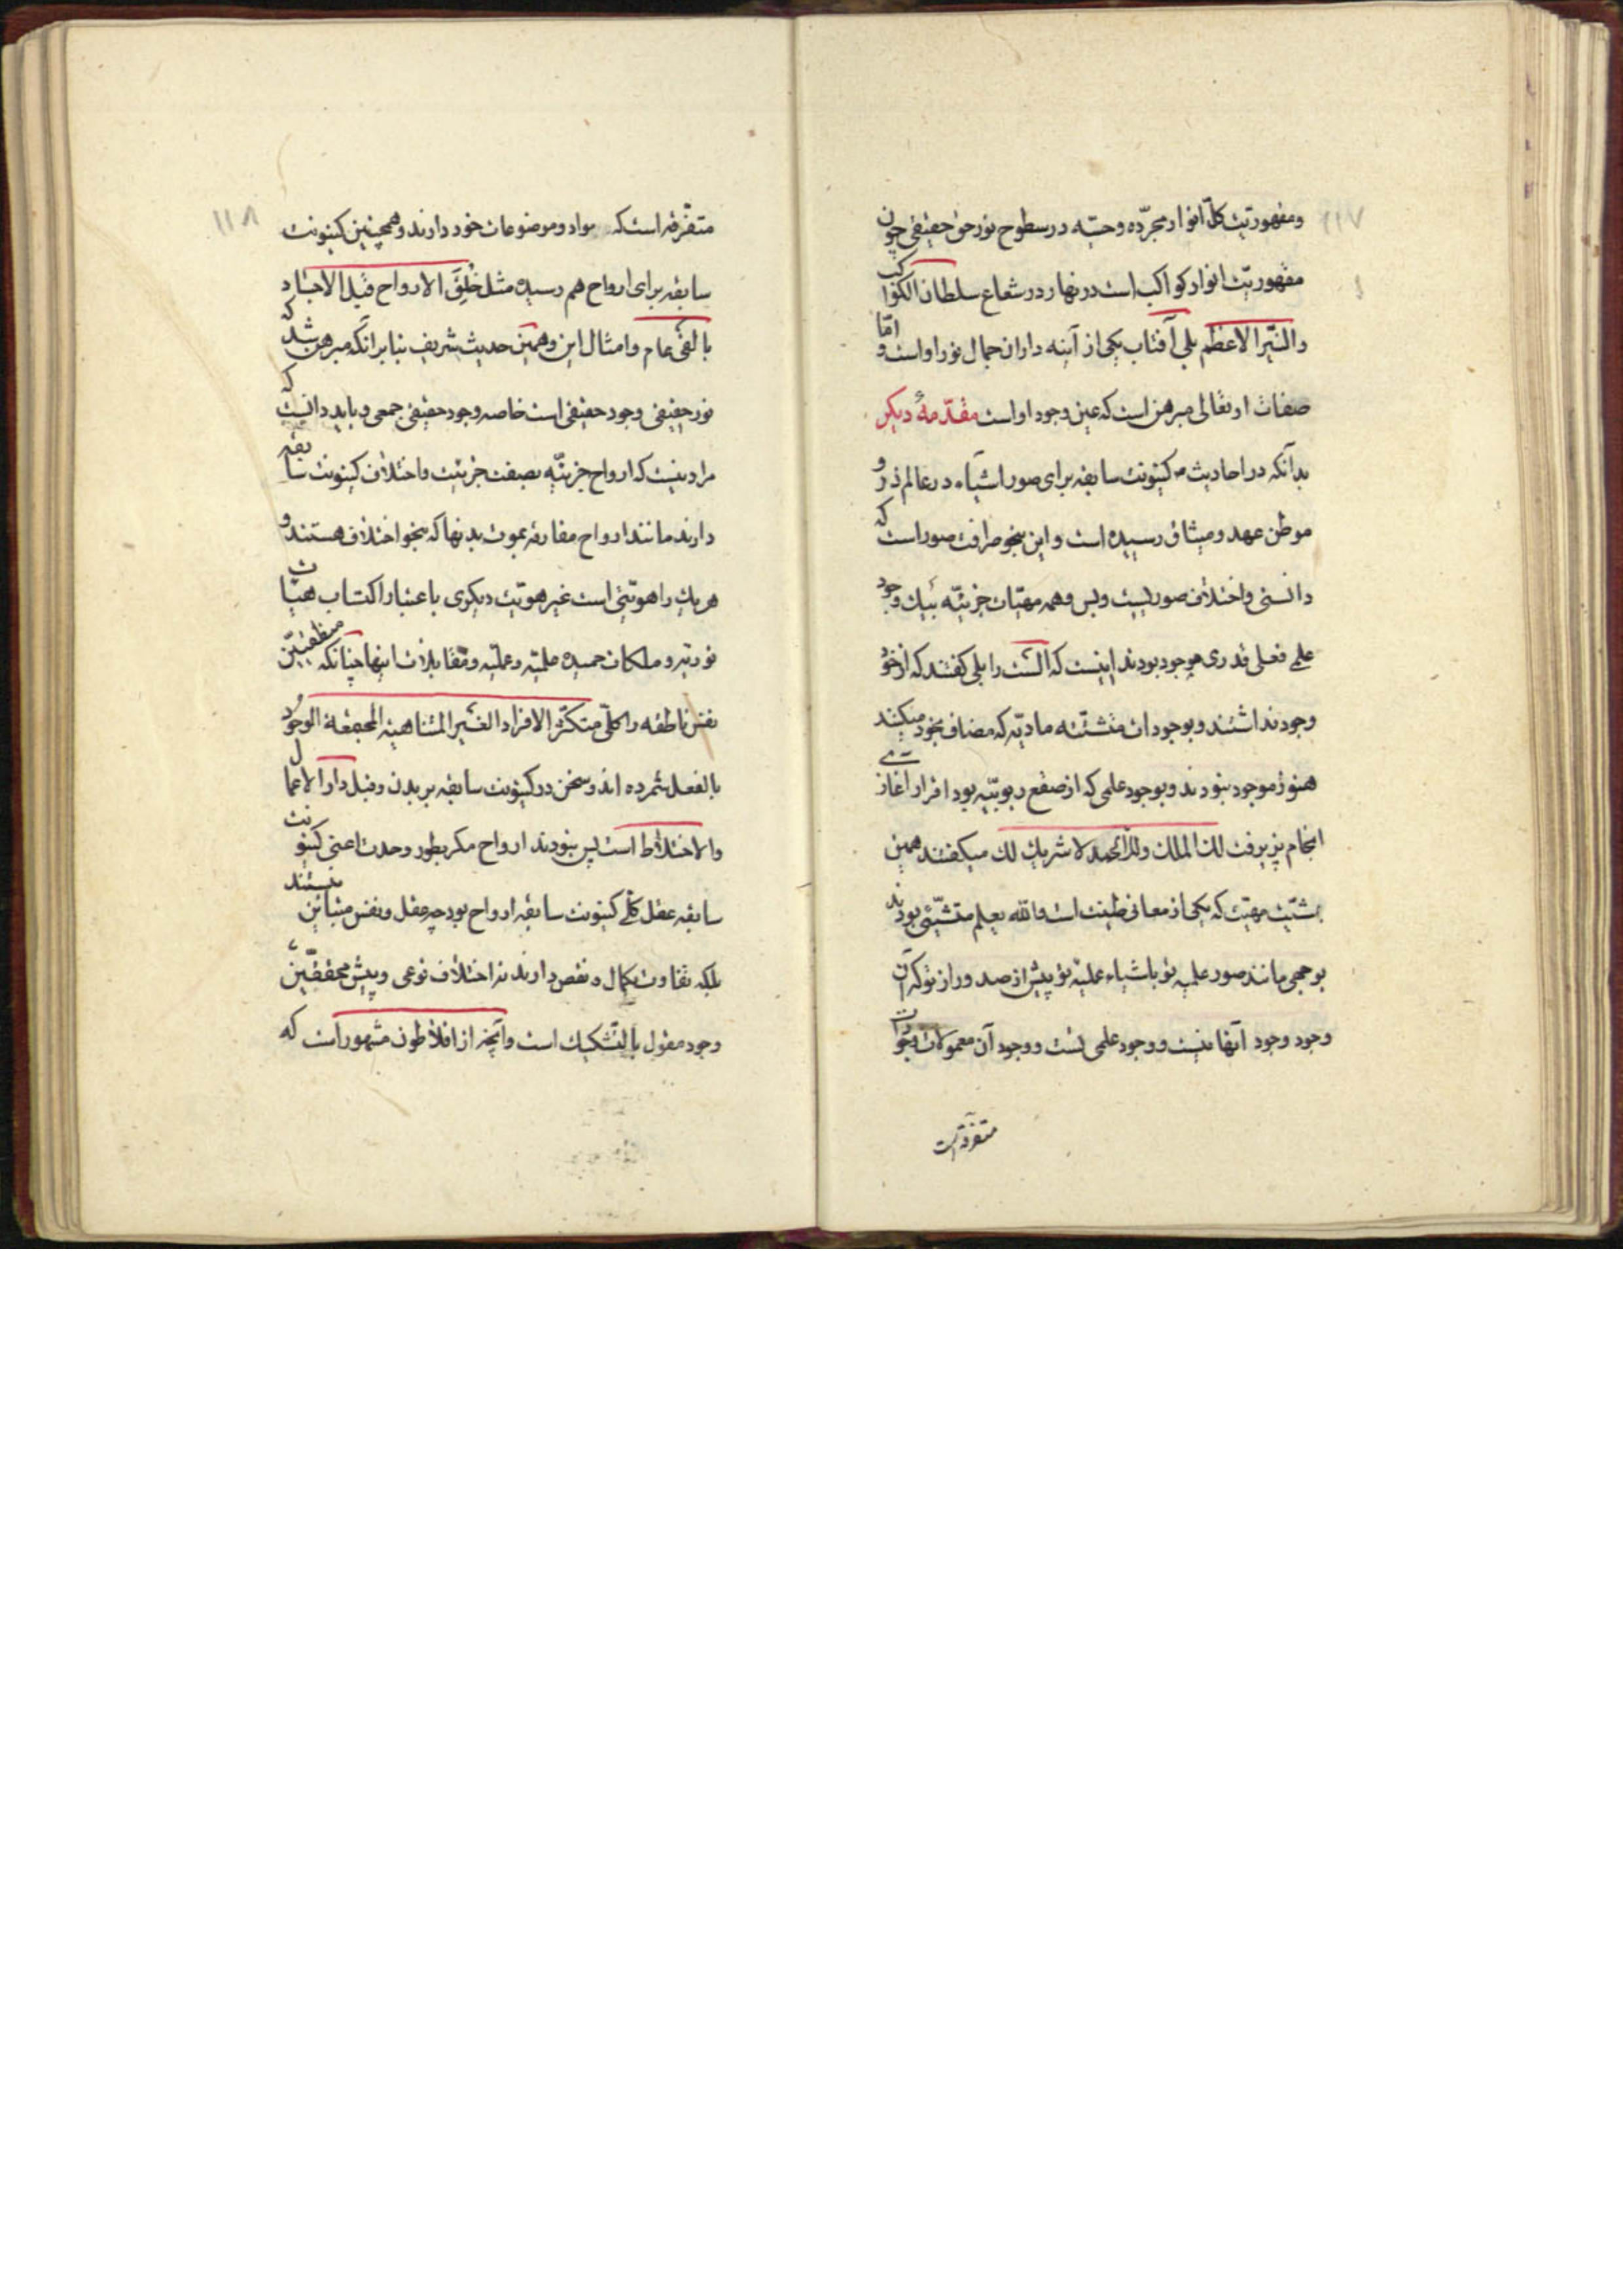 ۱۱۷
و مقهوریت کلّ انوار مجرّده و حسّیه در سطوح نور حق حقیقی چون
مقهوریّت انوار کواکب است در نهار در شعاع سلطان الکواکب
والنیّر الاعظم بلی آفتاب یکی از آینه داران جمال نور او است و امّا
صفات او تعالی مبرهن است که عین وجود او است مقدّمهٔ دیگر
بدآنکه در احادیث کینونت سابقه برای صور اشیآء در عالم ذر و
موطن عهد و میثاق رسیده است و این بنحو صرافت صور است که
دانستی و اختلاف صوریست و بس و همه مهیّات جزئیّه بیک وجود
علمی فعلی قدری موجود بودند اینست که الست را بلی گفتند که از خود
وجود نداشتند و بوجودات متشتّته مادیّه که مضاف بخود میکنند
هنوز موجود نبودند و بوجود علمی که از صقع ربوبیّه بود اقرار آغاز
انجام پذیرفت لك الملك ولك الحمد لا شریك لك میگفتند همین
بشیئیّت مهیّت که یکی از معانی طینت است والله یعلم متشیّئی بودند
بوجهی مانند صور علمیه تو باشیاء علمیّه تو پیش از صدور از تو که آن
وجود وجود آنها نیست و وجود علمی تست و وجود آن معمولات وجودات
متفرقه است
۱۱۸
متفرّقه است که مواد و موضوعات خود دارند و همچنین کینونت
سابقه برای ارواح هم رسیده مثل خُلِقَ الارواح قبل الاجساد
بالفی عام و امثال این و همین حدیث شریف بنا بر آنکه مبرهن شد که
نور حقیقی وجود حقیقی است خاصه وجود حقیقی جمعی و باید دانست که
مراد نیست که ارواح جزئیّه بصفت جزئیت و اختلاف کینونت سابقه
دارند مانند ارواح مفارقه بموت بدنها که بنحو اختلاف هستند و
هریك را هویّتی است غیر هویّت دیگری باعتبار اکتساب هیئات
نوریّه و ملکات حمیده علمیّه و عملیّه و مقابلات اینها چنانکه منطقیّین
نفس ناطقه را کلّی متکثّر الافراد الغیر المتناهیة المجتمعة الوجود
بالفعل شمرده اند و سخن در کینونت سابقه بر بدن و قبل دار الاعمال
والاختلاط است پس نبودند ارواح مگر بطور وحدت اعنی کینونت
سابقه عقل کلّی کینونت سابقه ارواح بود چه عقل و نفس متباین نیستند
بلکه تفاوت بکمال و نقص دارند نه اختلاف نوعی و پیش محققّین
وجود مقول بالتّشکیك است و آنچه از افلاطون مشهور است که